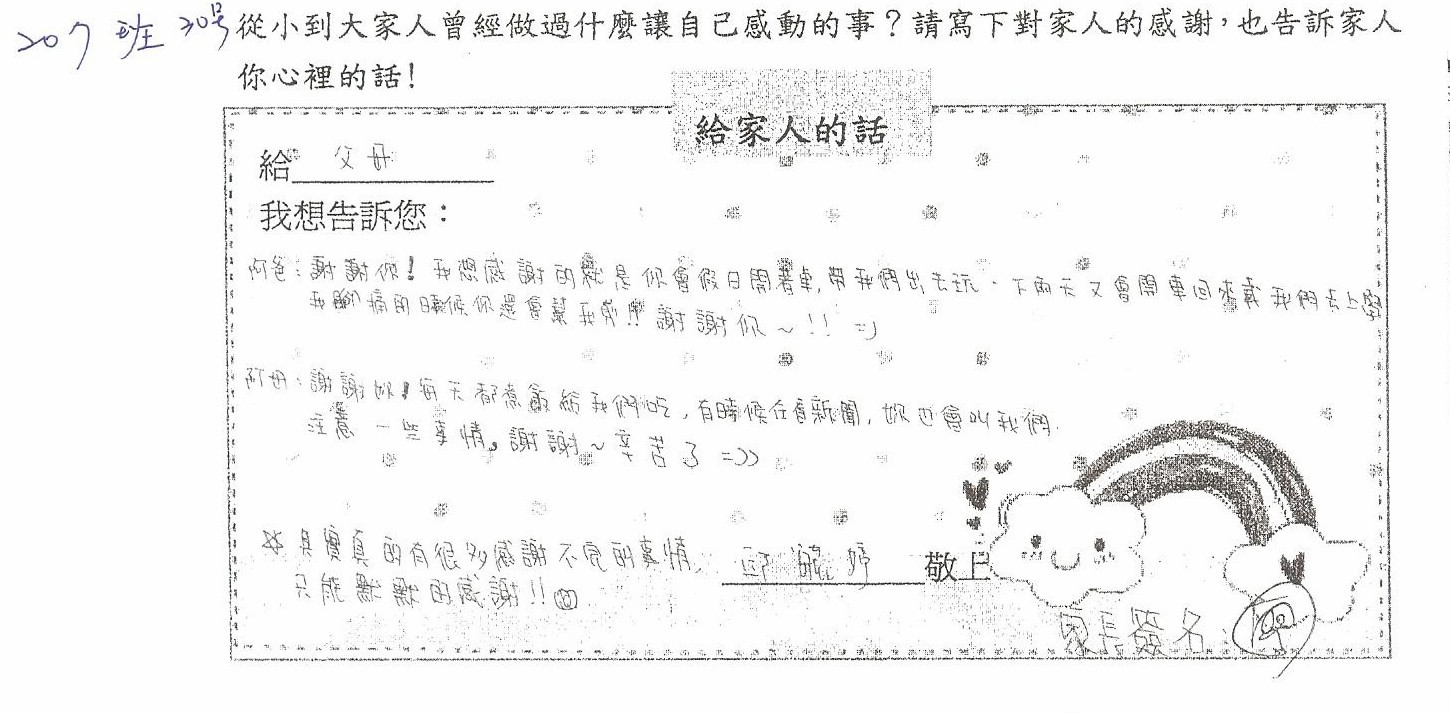 207 班 30號 從小到大家人曾經做過什麼讓自己感動的事？請寫下對家人的感謝，也告訴家人
你心裡的話！
給家人的話
給 父母
我想告訴您：
阿爸：謝謝你！我想感謝的就是你會假日開著車，帶我們出去玩，下雨天又會開車回來載我們去上學
我腳痛的時候你還會幫我 謝謝你～!! =)
阿母：謝謝妳！每天都煮飯給我們吃，有時候在看新聞，妳也會叫我們
注意一些事情。謝謝～辛苦了 =))
其實真的有很多感謝不完的事情，
只能默默的感謝!!
邱 婷 敬上
家長簽名：